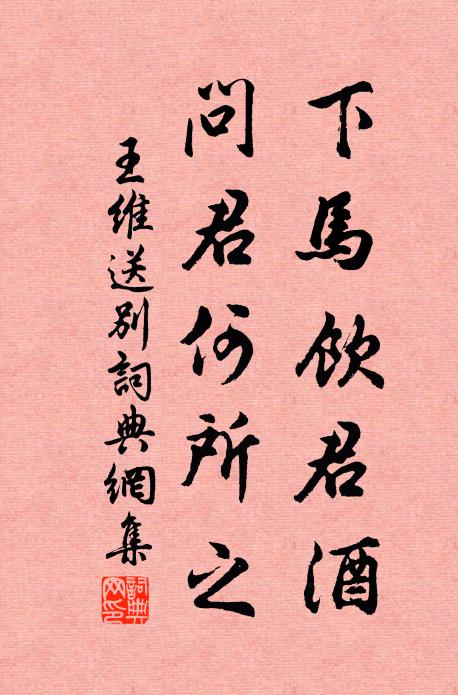 下馬飲君酒
問君何所之
王維送別詞典網集
詞典網印